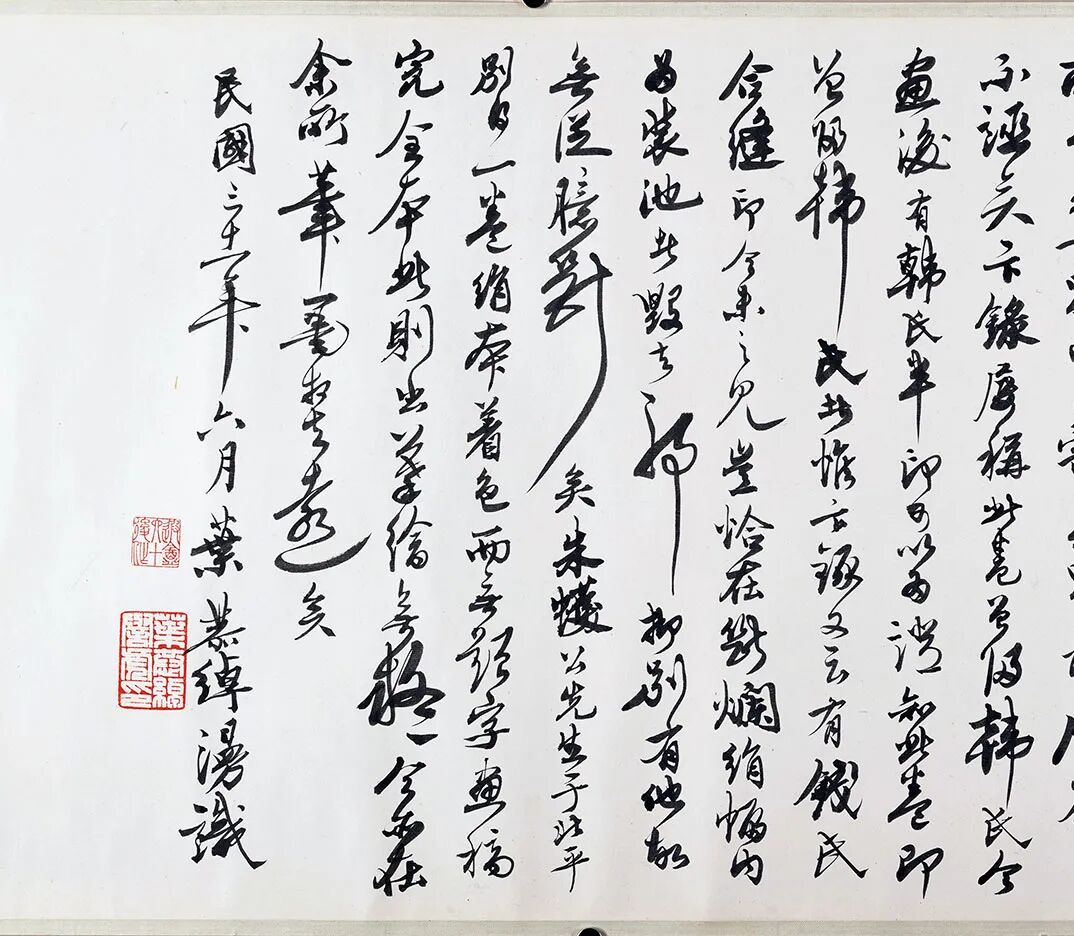 不誣矣卞錄屢稱此卷曾歸韓氏今
畫後有韓氏半印可以為證知此卷即
曾歸韓氏者惟卞錄又云有錢氏
合縫印今未之見豈恰在斷爛絹幅内
為裝池者毀去耶抑別有他故
無從臆斷矣朱㶇公先生于北平
別得一卷絹本着色而無題字畫稿
完全本此則出摹繪無疑今亦在
余所筆墨相去遠矣
民國三十一年六月葉恭綽漫識